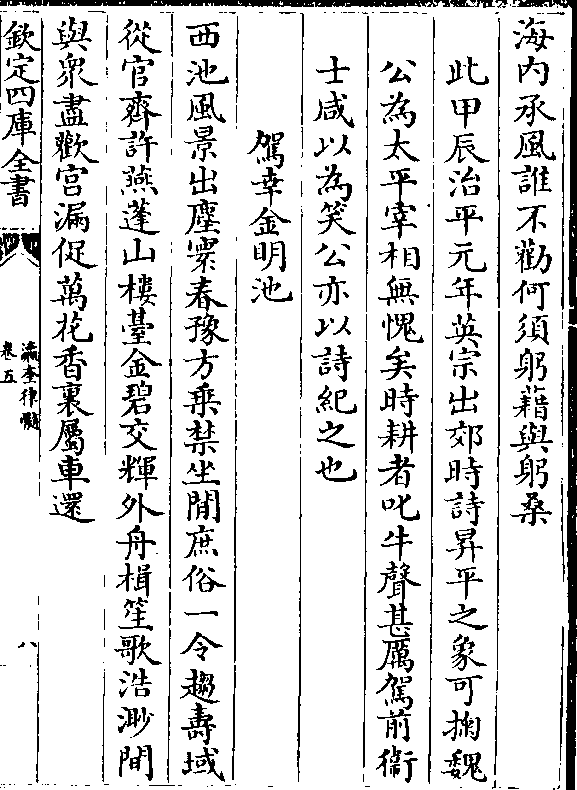 海内承風誰不勸何須躬藉與躬桑
此甲辰治平元年英宗出郊時詩昇平之象可掬魏
公為太平宰相無愧矣時耕者叱牛聲甚厲駕前衞
士咸以為笑公亦以詩紀之也
駕幸金明池
西池風景出塵寰春豫方乗禁坐閒庶俗一令趨壽域
從官齊許燕蓬山樓臺金碧交輝外舟楫笙歌浩渺間
與衆盡歡宮漏促萬花香裏屬車還
欽定四庫全書
瀛奎律髓
卷五
八